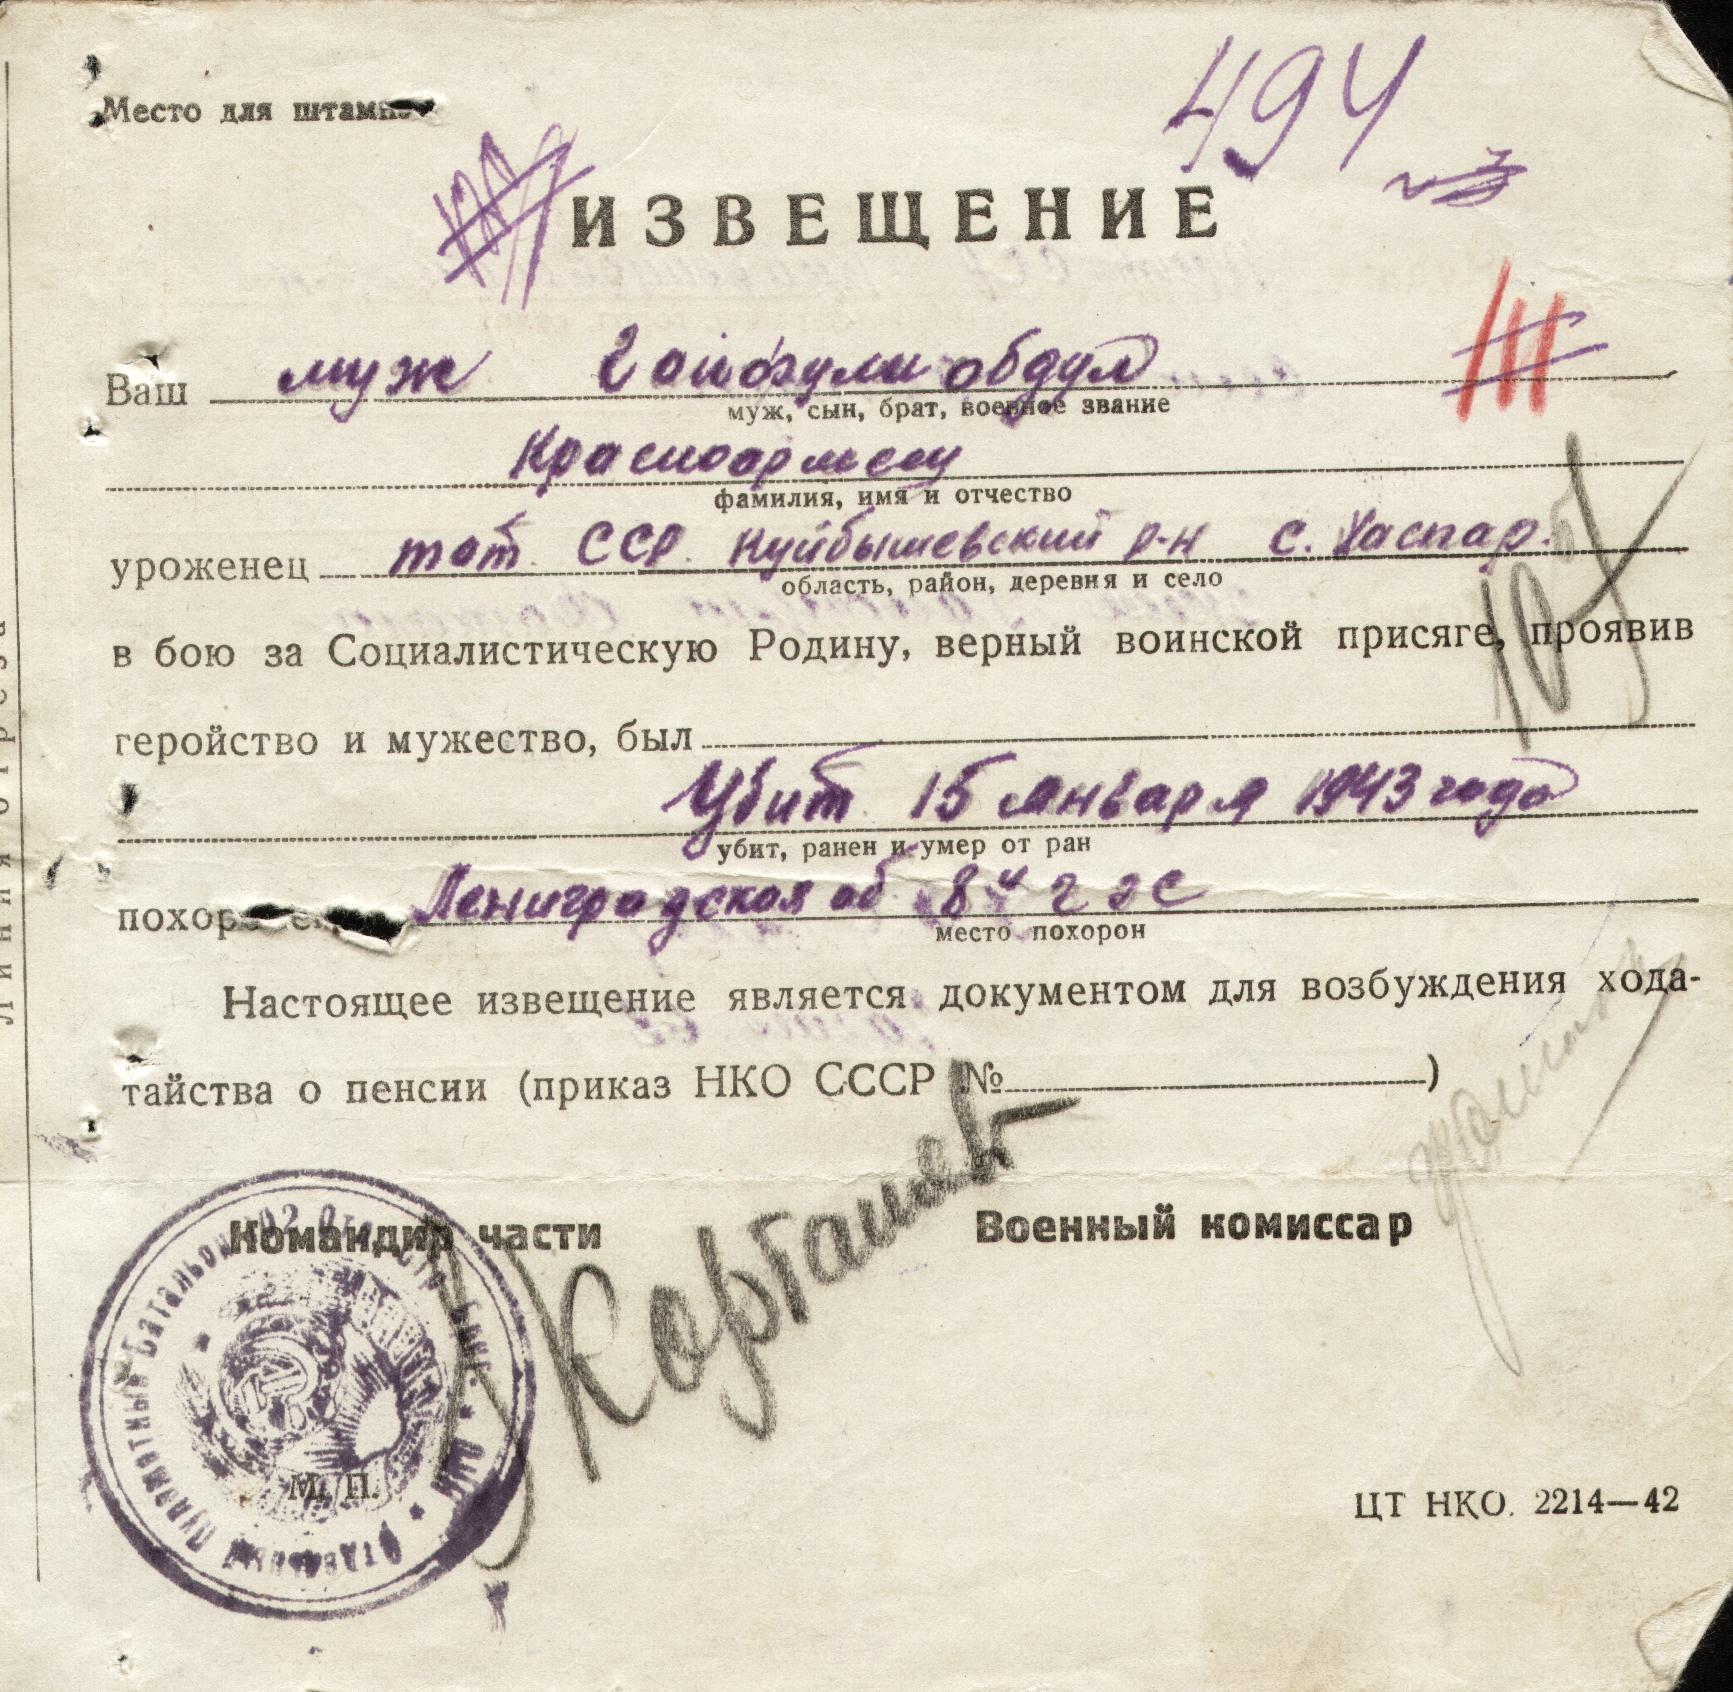 Место для штампа
494
ИЗВЕЩЕНИЕ
Ваш муж Гайфули обдул
муж, сын, брат, военное звание
Красноармеец
фамилия, имя и отчество
уроженец тат. ССР. Куйбышевский р-н с. Хаспар.
область, район, деревня и село
в бою за Социалистическую Родину, верный воинской присяге, проявив
геройство и мужество, был
Убит 15 января 1943 года
убит, ранен и умер от ран
похоронен Ленинградская об 8й г эс
место похорон
Настоящее извещение является документом для возбуждения хода-
тайства о пенсии (приказ НКО СССР №)
Командир части Военный комиссар
Карташев
М. П.
ЦТ НКО. 2214—42
Линия отреза